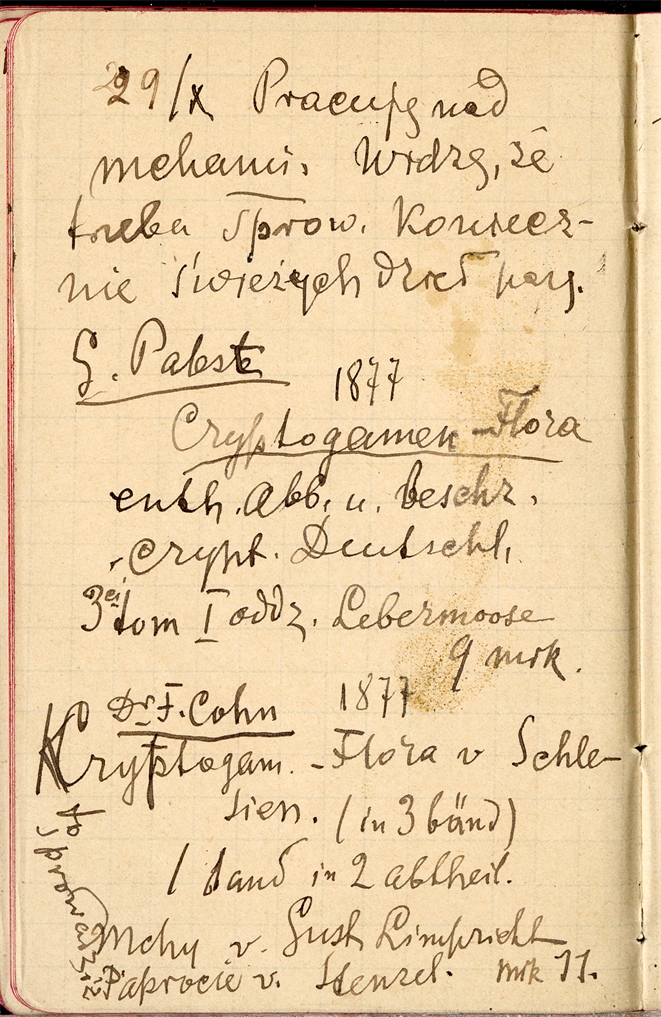 29/X Pracuję nad
mchami. Widzę, że
trzeba sprow. koniecz-
nie świeżych dzieł parę.
G. Pabst
1877
Cryptogamen-Flora
enth. Abb. u. beschr.
Crypt. Deutschl.
3ci tom I oddz. Lebermoose
9 mrk.
Dr F. Cohn 1877
Kryptogam. - Flora v Schle-
sien. (in 3 bänd)
1 band in 2 abtheil.
Mchy v. Gust Limpricht
Paprocie v. Stenzel. mrk 11.
to sprowadzić